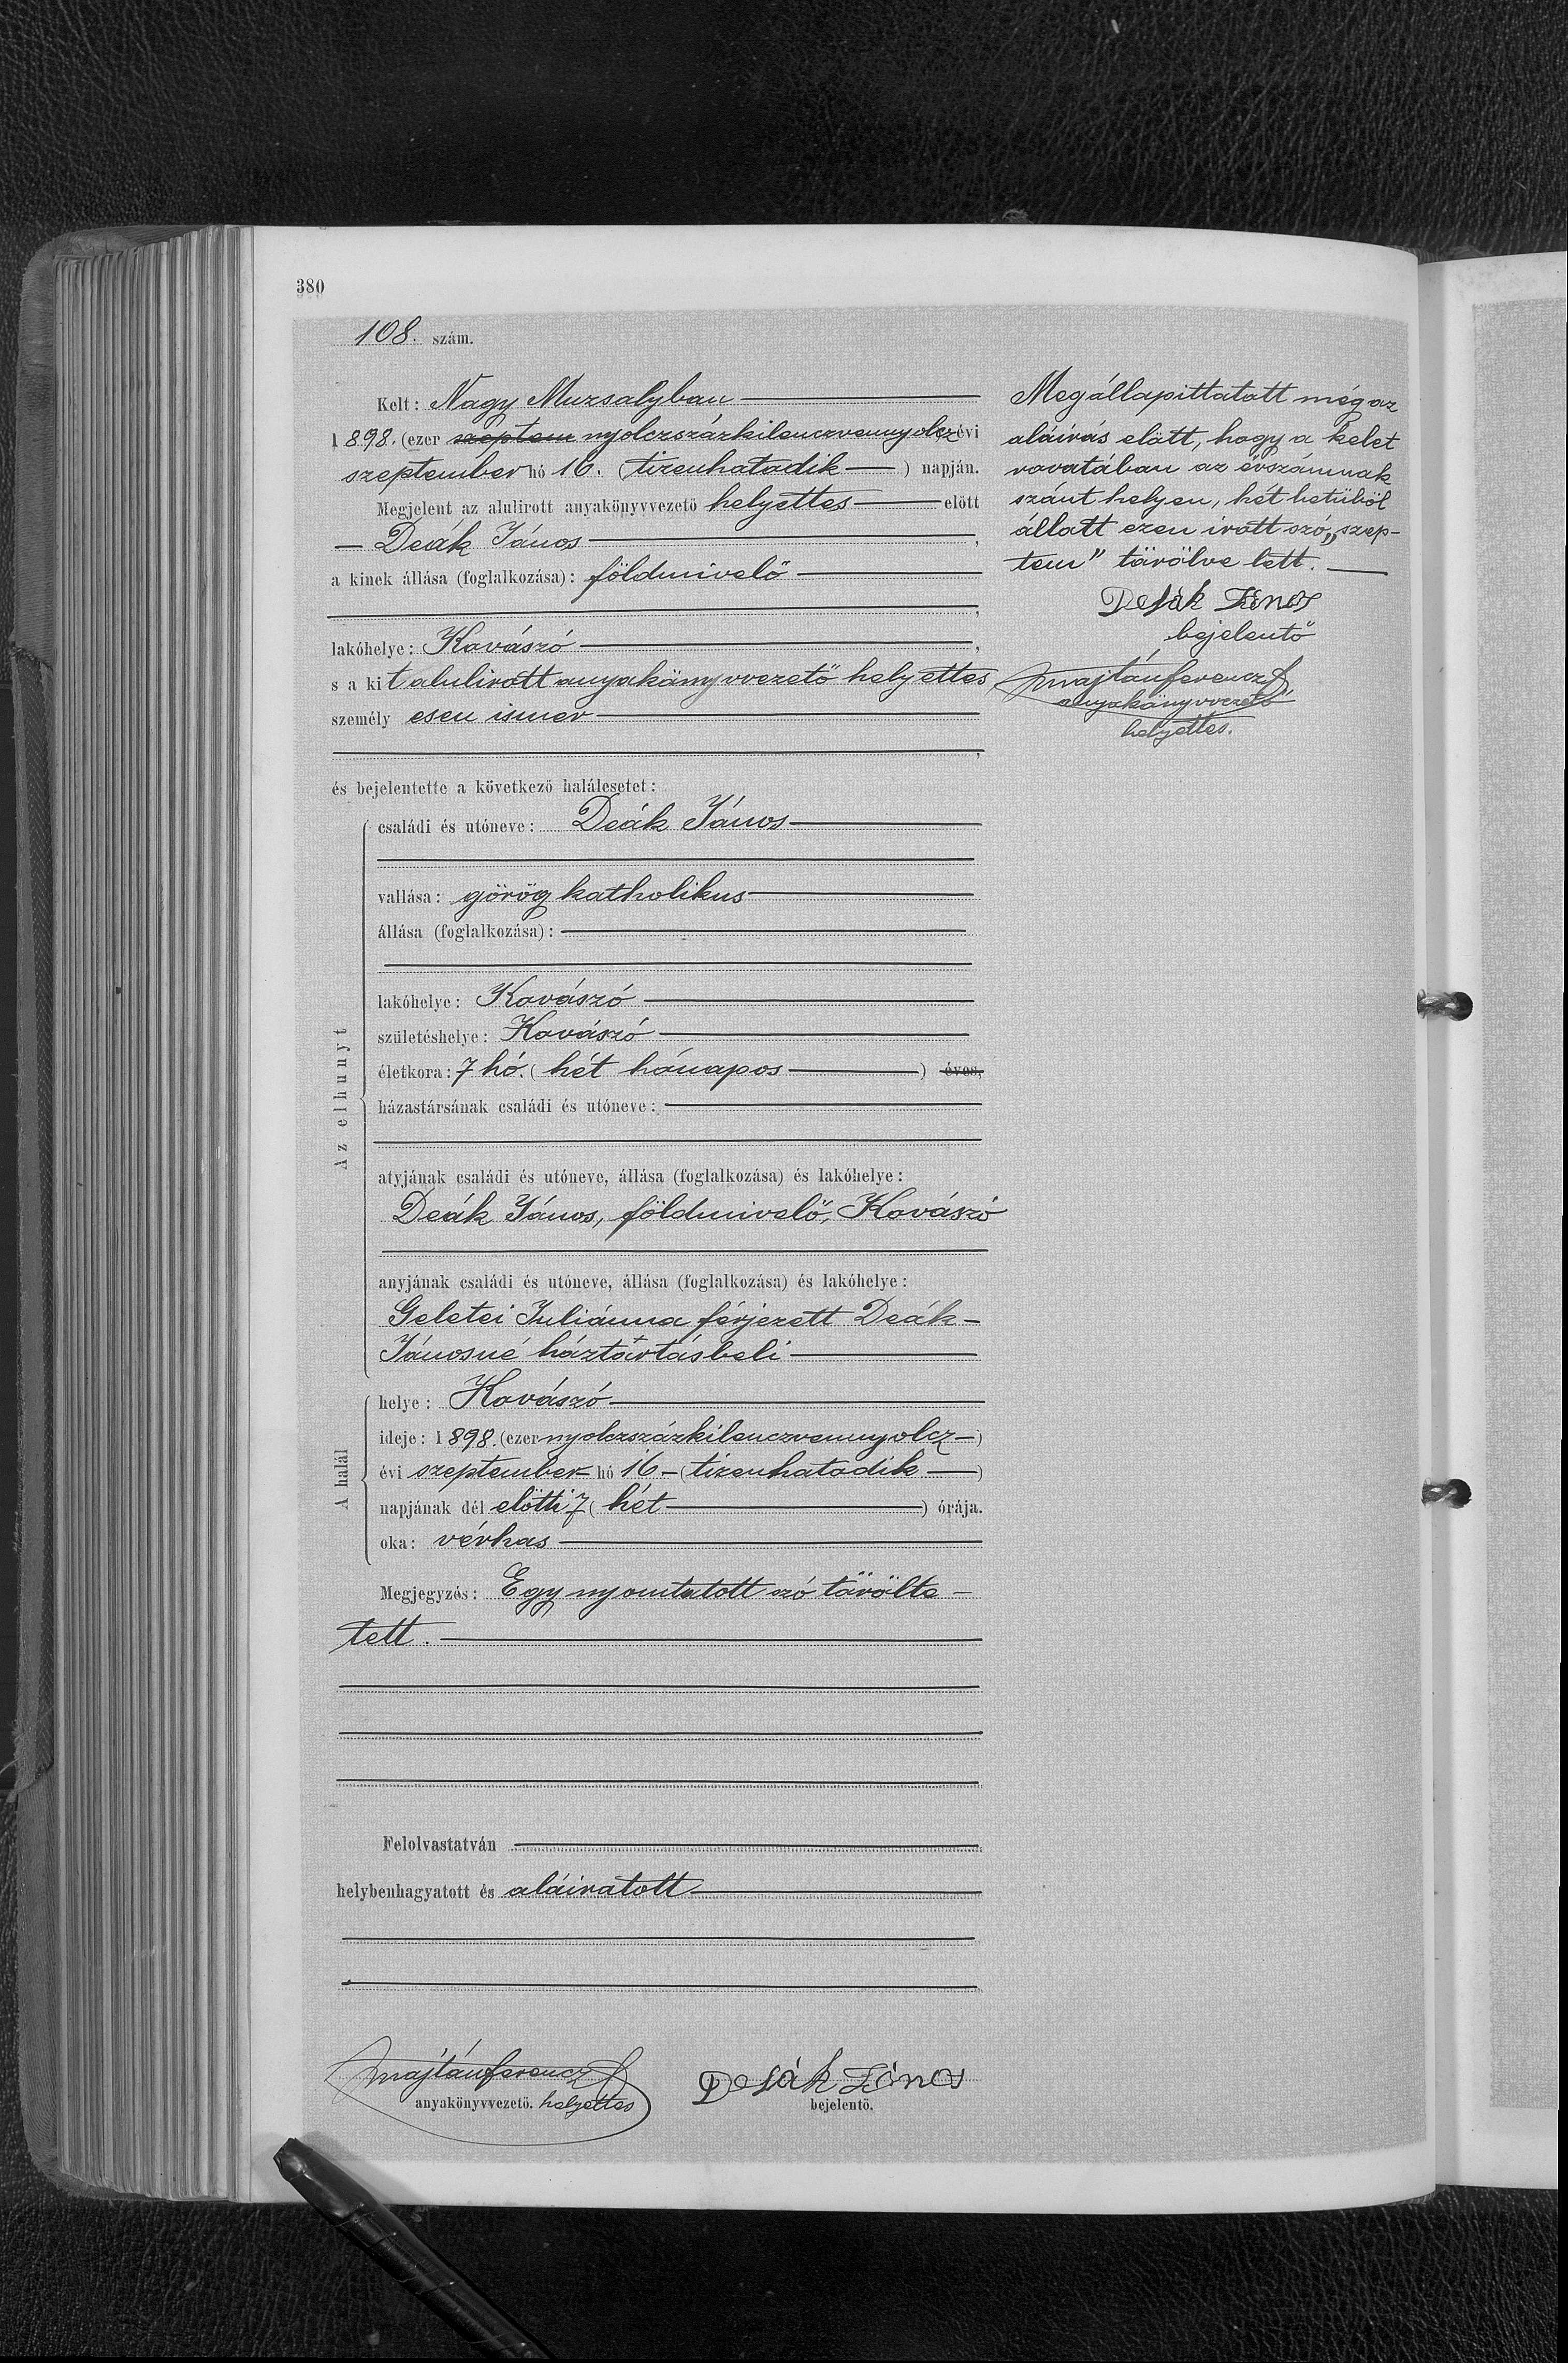 380
108. szám.
Kelt: Nagy Muzsalyban
1898. (ezer szeptem nyolczszázkilenczvennyolcz évi
szeptember hó 16. (tizenhatadik) napján.
Megjelent az alulirott anyakönyvvezető helyettes előtt
Deák János,
a kinek állása (foglalkozása): földmivelő
,
lakóhelye: Kovászó,
s a kit alulirott anyakönyvvezető helyettes
személyesen ismer
,
és bejelentette a következő halálesetet:
Az elhunyt
családi és utóneve: Deák János
vallása: görög katholikus
állása (foglalkozása):
lakóhelye: Kovászó
születéshelye: Kovászó
életkora: 7 hó. (hét hónapos) éves,
házastársának családi és utóneve:
atyjának családi és utóneve, állása (foglalkozása) és lakóhelye:
Deák János, földmivelő, Kovászó
anyjának családi és utóneve, állása (foglalkozása) és lakóhelye:
Geletei Juliánna férjezett Deák-
Jánosné háztartásbeli
A halál
helye: Kovászó
ideje: 1898. (ezer nyolczszázkilenczvennyolcz)
évi szeptember hó 16 (tizenhatadik)
napjának dél előtti 7 (hét) órája.
oka: vérhas
Megjegyzés: Egy nyomtatott szó törölte-
tett.
Felolvastatván
helybenhagyatott és aláiratott
Majtán Ferencz
anyakönyvvezető. helyettes
Deák János
bejelentő.
Megállapittatott még az
aláirás előtt, hogy a kelet
rovatában az évszámnak
szánt helyen, hét betüből
állott ezen irott szó „szep-
tem" törölve lett.
Deák János
bejelentő
Majtán Ferencz
anyakönyvvezető
helyettes.